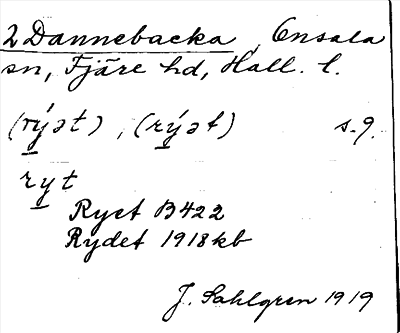 2 Dannebacka, Onsala
sn, Fjäre hd, Hall. l.
(rýət), (rýət) s. 9.
ryt
Ryet B422
Rydet 1918 kb
J. Sahlgren 1919